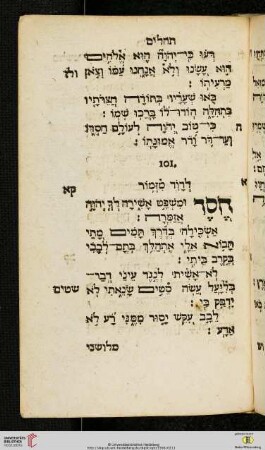 תהלים
דְּעוּ כִּי־יְהוָה הוּא אֱלֹהִים
הוּא עָשָׂנוּ וְלֹא אֲנַחְנוּ עַמּוֹ וְצֹאן
מַרְעִיתוֹ׃
בֹּאוּ שְׁעָרָיו בְּתוֹדָה חֲצֵרֹתָיו
בִּתְהִלָּה הוֹדוּ־לוֹ בָּרֲכוּ שְׁמוֹ׃
ה כִּי־טוֹב יְהוָה לְעוֹלָם חַסְדּוֹ
וְעַד־דֹּר וָדֹר אֱמוּנָתוֹ׃
101.
א לְדָוִד מִזְמוֹר קא
חֶסֶד וּמִשְׁפָּט אָשִׁירָה לְךָ יְהוָה
אֲזַמֵּרָה׃
אַשְׂכִּילָה בְּדֶרֶךְ תָּמִים מָתַי
תָּבוֹא אֵלָי אֶתְהַלֵּךְ בְּתָם־לְבָבִי
בְּקֶרֶב בֵּיתִי׃
לֹא־אָשִׁית לְנֶגֶד עֵינַי דְּבַר־
בְּלִיָּעַל עֲשֹׂה סֵטִים שָׂנֵאתִי לֹא שטים
יִדְבַּק בִּי׃
לֵבָב עִקֵּשׁ יָסוּר מִמֶּנִּי רָע לֹא
אֵדָע׃
מלושני
UNIVERSITÄTS-
BIBLIOTHEK
HEIDELBERG
© Universitätsbibliothek Heidelberg